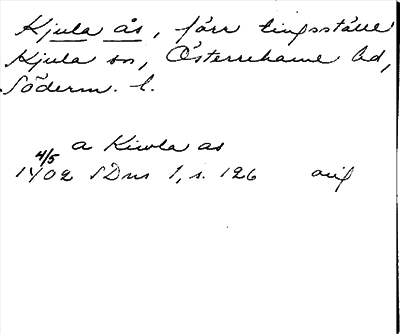 Kjula ås, förr tingsställe
Kjula sn, Österrekarne hd,
Söderm. l.
a Kiwla as
4/5
1402 SDns 1, s. 126 orig